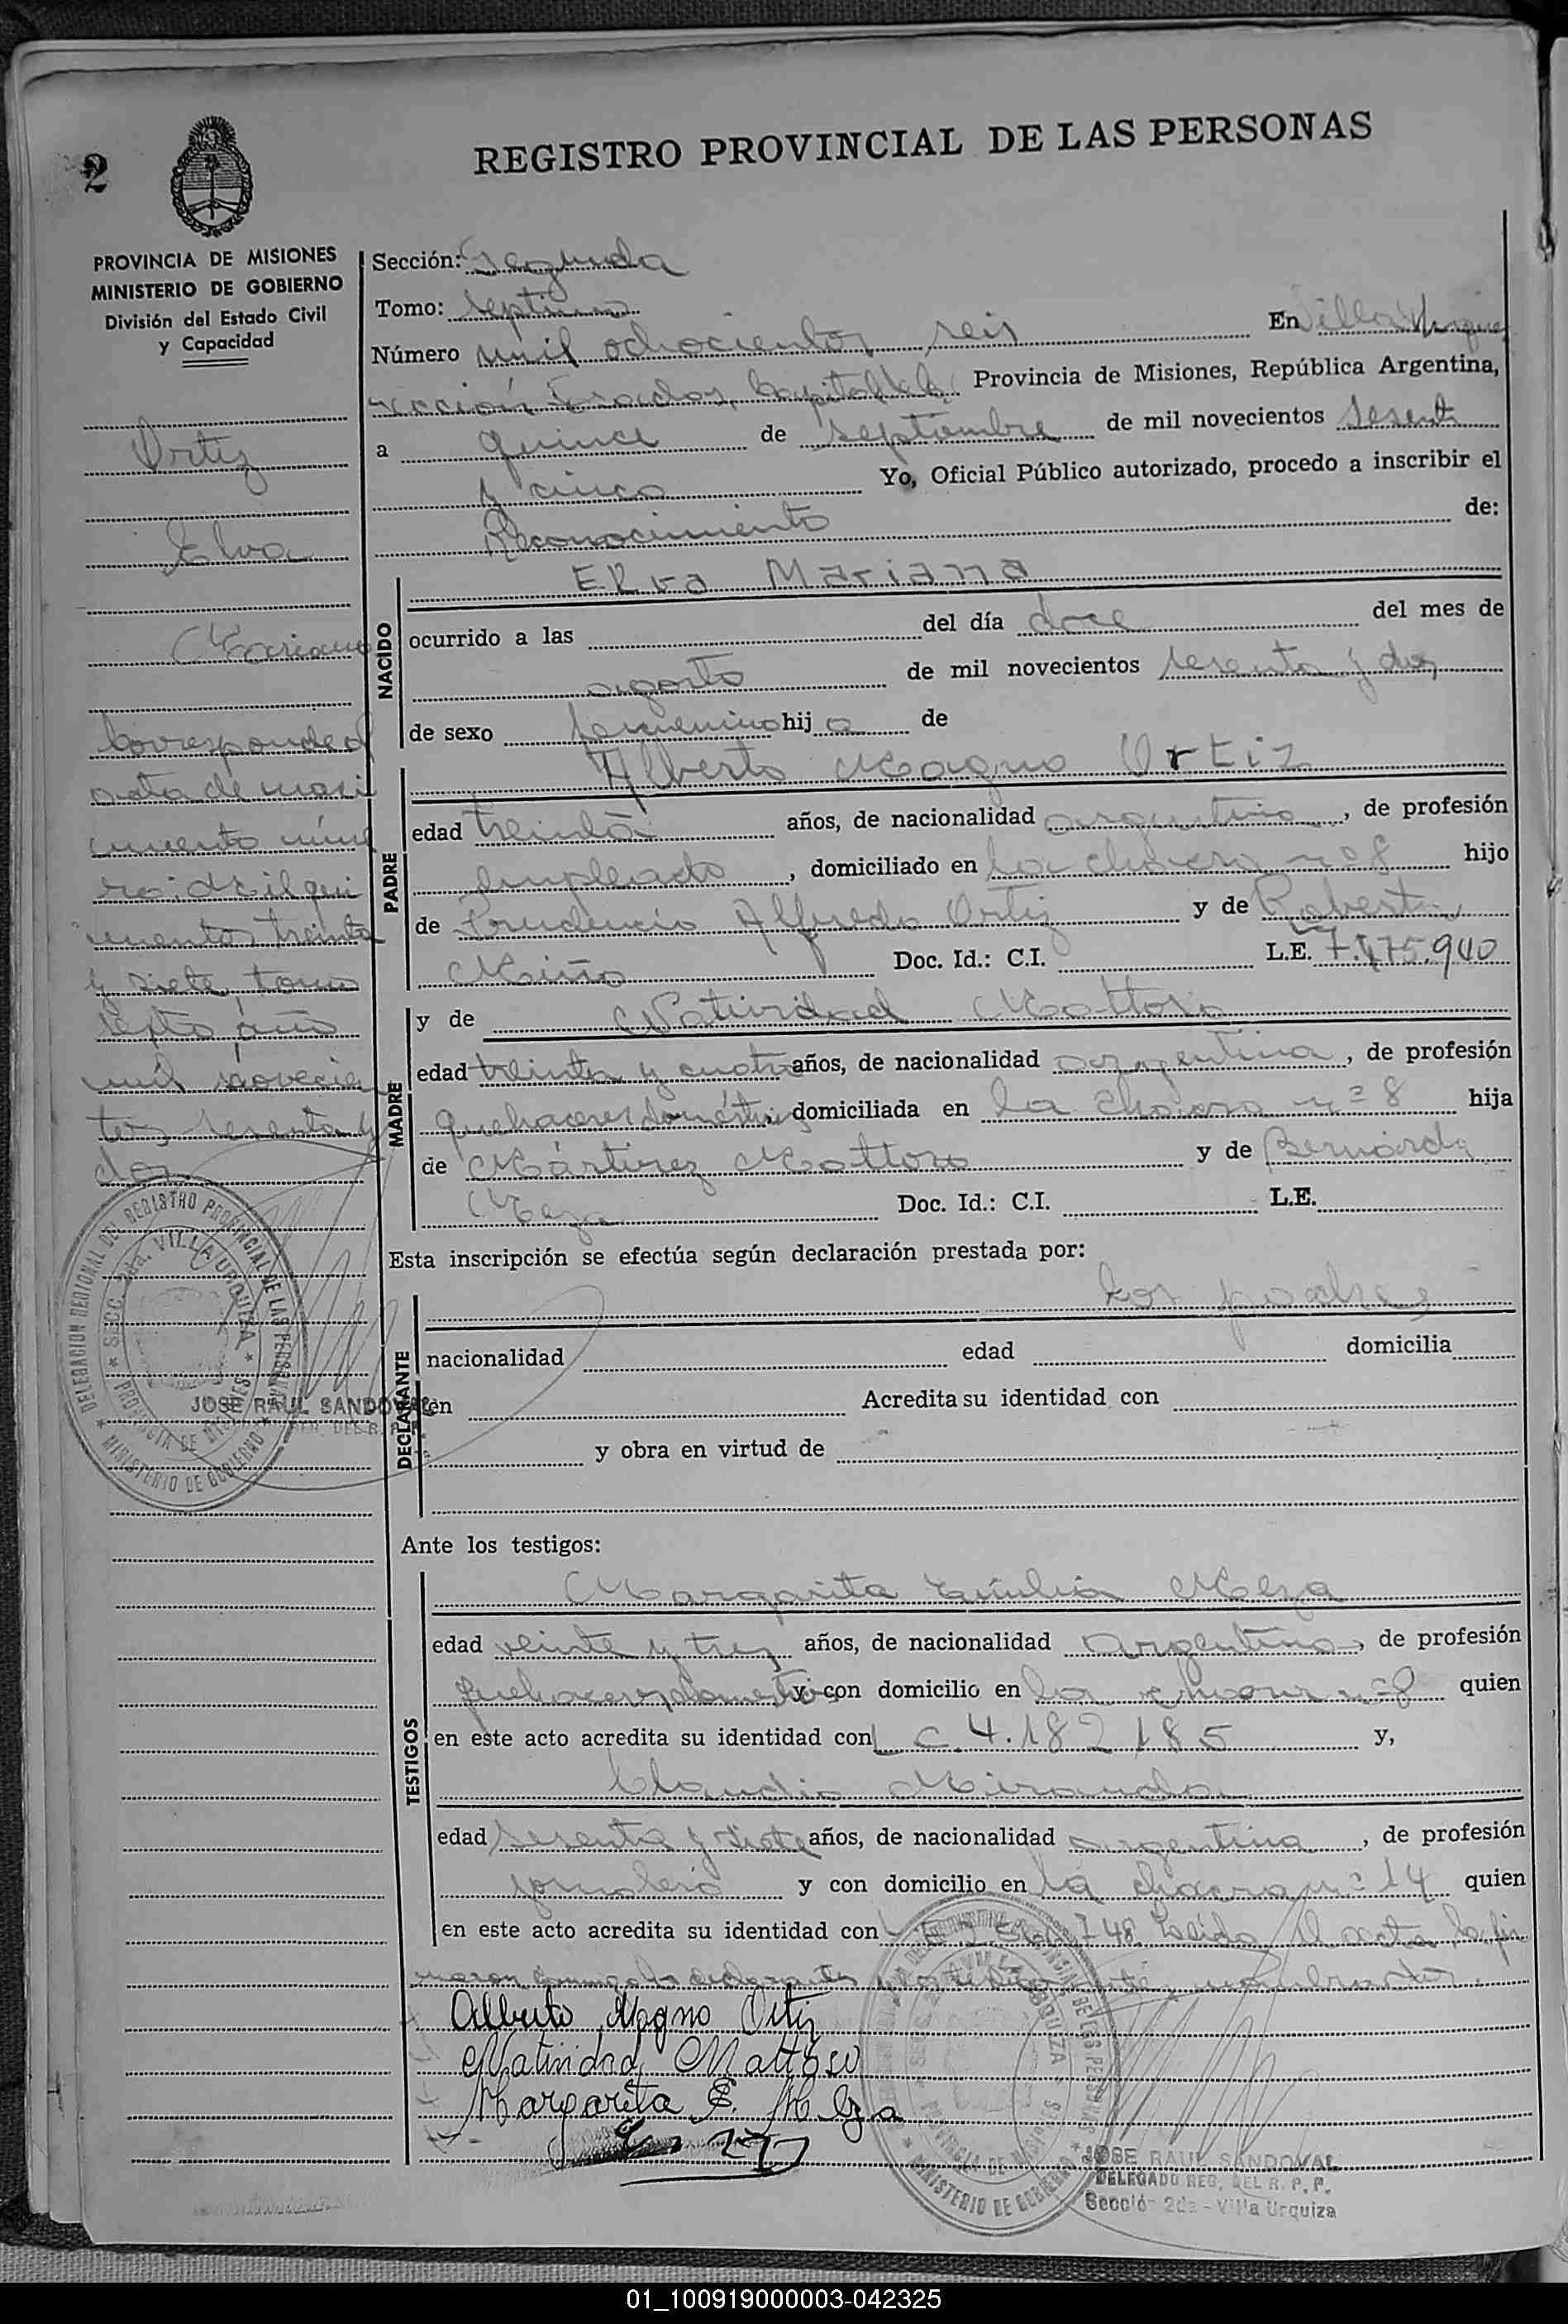 2
REGISTRO PROVINCIAL DE LAS PERSONAS
PROVINCIA DE MISIONES
MINISTERIO DE GOBIERNO
División del Estado Civil
y Capacidad
Ortiz
Elva
Mariana
Corresponde al
acta de naci
miento núme
ro: Mil qui
nientos treinta
y siete, tomo
septo, año
mil novecien
tos sesenta y
dos
DELEGACION REGIONAL DEL REGISTRO PROVINCIAL DE LAS PERSONAS
SECC. 2da. VILLA URQUIZA
PROVINCIA DE MISIONES
MINISTERIO DE GOBIERNO
JOSE RAUL SANDOVAL
Sección: Segunda
Tomo: Septimo
Número mil ochocientos seis En Villa Urquiza
sección Posadas, Capital de la Provincia de Misiones, República Argentina,
a quince de septiembre de mil novecientos sesenta
y cinco Yo, Oficial Público autorizado, procedo a inscribir el
Reconocimiento de:
NACIDO
Elva Mariana
ocurrido a las del día doce del mes de
agosto de mil novecientos sesenta y dos
de sexo femenino hija de
PADRE
Alberto Magno Ortiz
edad treinta años, de nacionalidad argentino, de profesión
empleado, domiciliado en la chacra nº 8 hijo
de Prudencio Alfredo Ortiz y de Robertina
Miño Doc. Id.: C.I. L.E. 7.475.940
MADRE
y de Natividad Mattoso
edad treinta y cuatro años, de nacionalidad argentina, de profesión
quehaceres domésticos domiciliada en la chacra nº 8 hija
de Mártirez Mattoso y de Bernarda
Meza Doc. Id.: C.I. L.E.
Esta inscripción se efectúa según declaración prestada por:
DECLARANTE
los padres
nacionalidad edad domicilia
en Acredita su identidad con
y obra en virtud de
Ante los testigos:
TESTIGOS
Margarita Emilia Meza
edad veinte y tres años, de nacionalidad argentina, de profesión
quehaceres domesticos y con domicilio en la chacra nº 8 quien
en este acto acredita su identidad con L C 4.182 185 y,
Claudio Miranda
edad sesenta y siete años, de nacionalidad argentina, de profesión
jornalero y con domicilio en la chacra nº 14 quien
en este acto acredita su identidad con 748 Leido el acta, la fir
maron conmigo los declarantes y los testigos nombrados.
Alberto Magno Ortiz
Natividad Mattoso
Margarita E. Meza
SECC. 2da. VILLA URQUIZA
PROVINCIA DE MISIONES
MINISTERIO DE GOBIERNO
JOSE RAUL SANDOVAL
DELEGADO REG. DEL R. P. P.
Sección 2da - Villa Urquiza
01_100919000003-042325